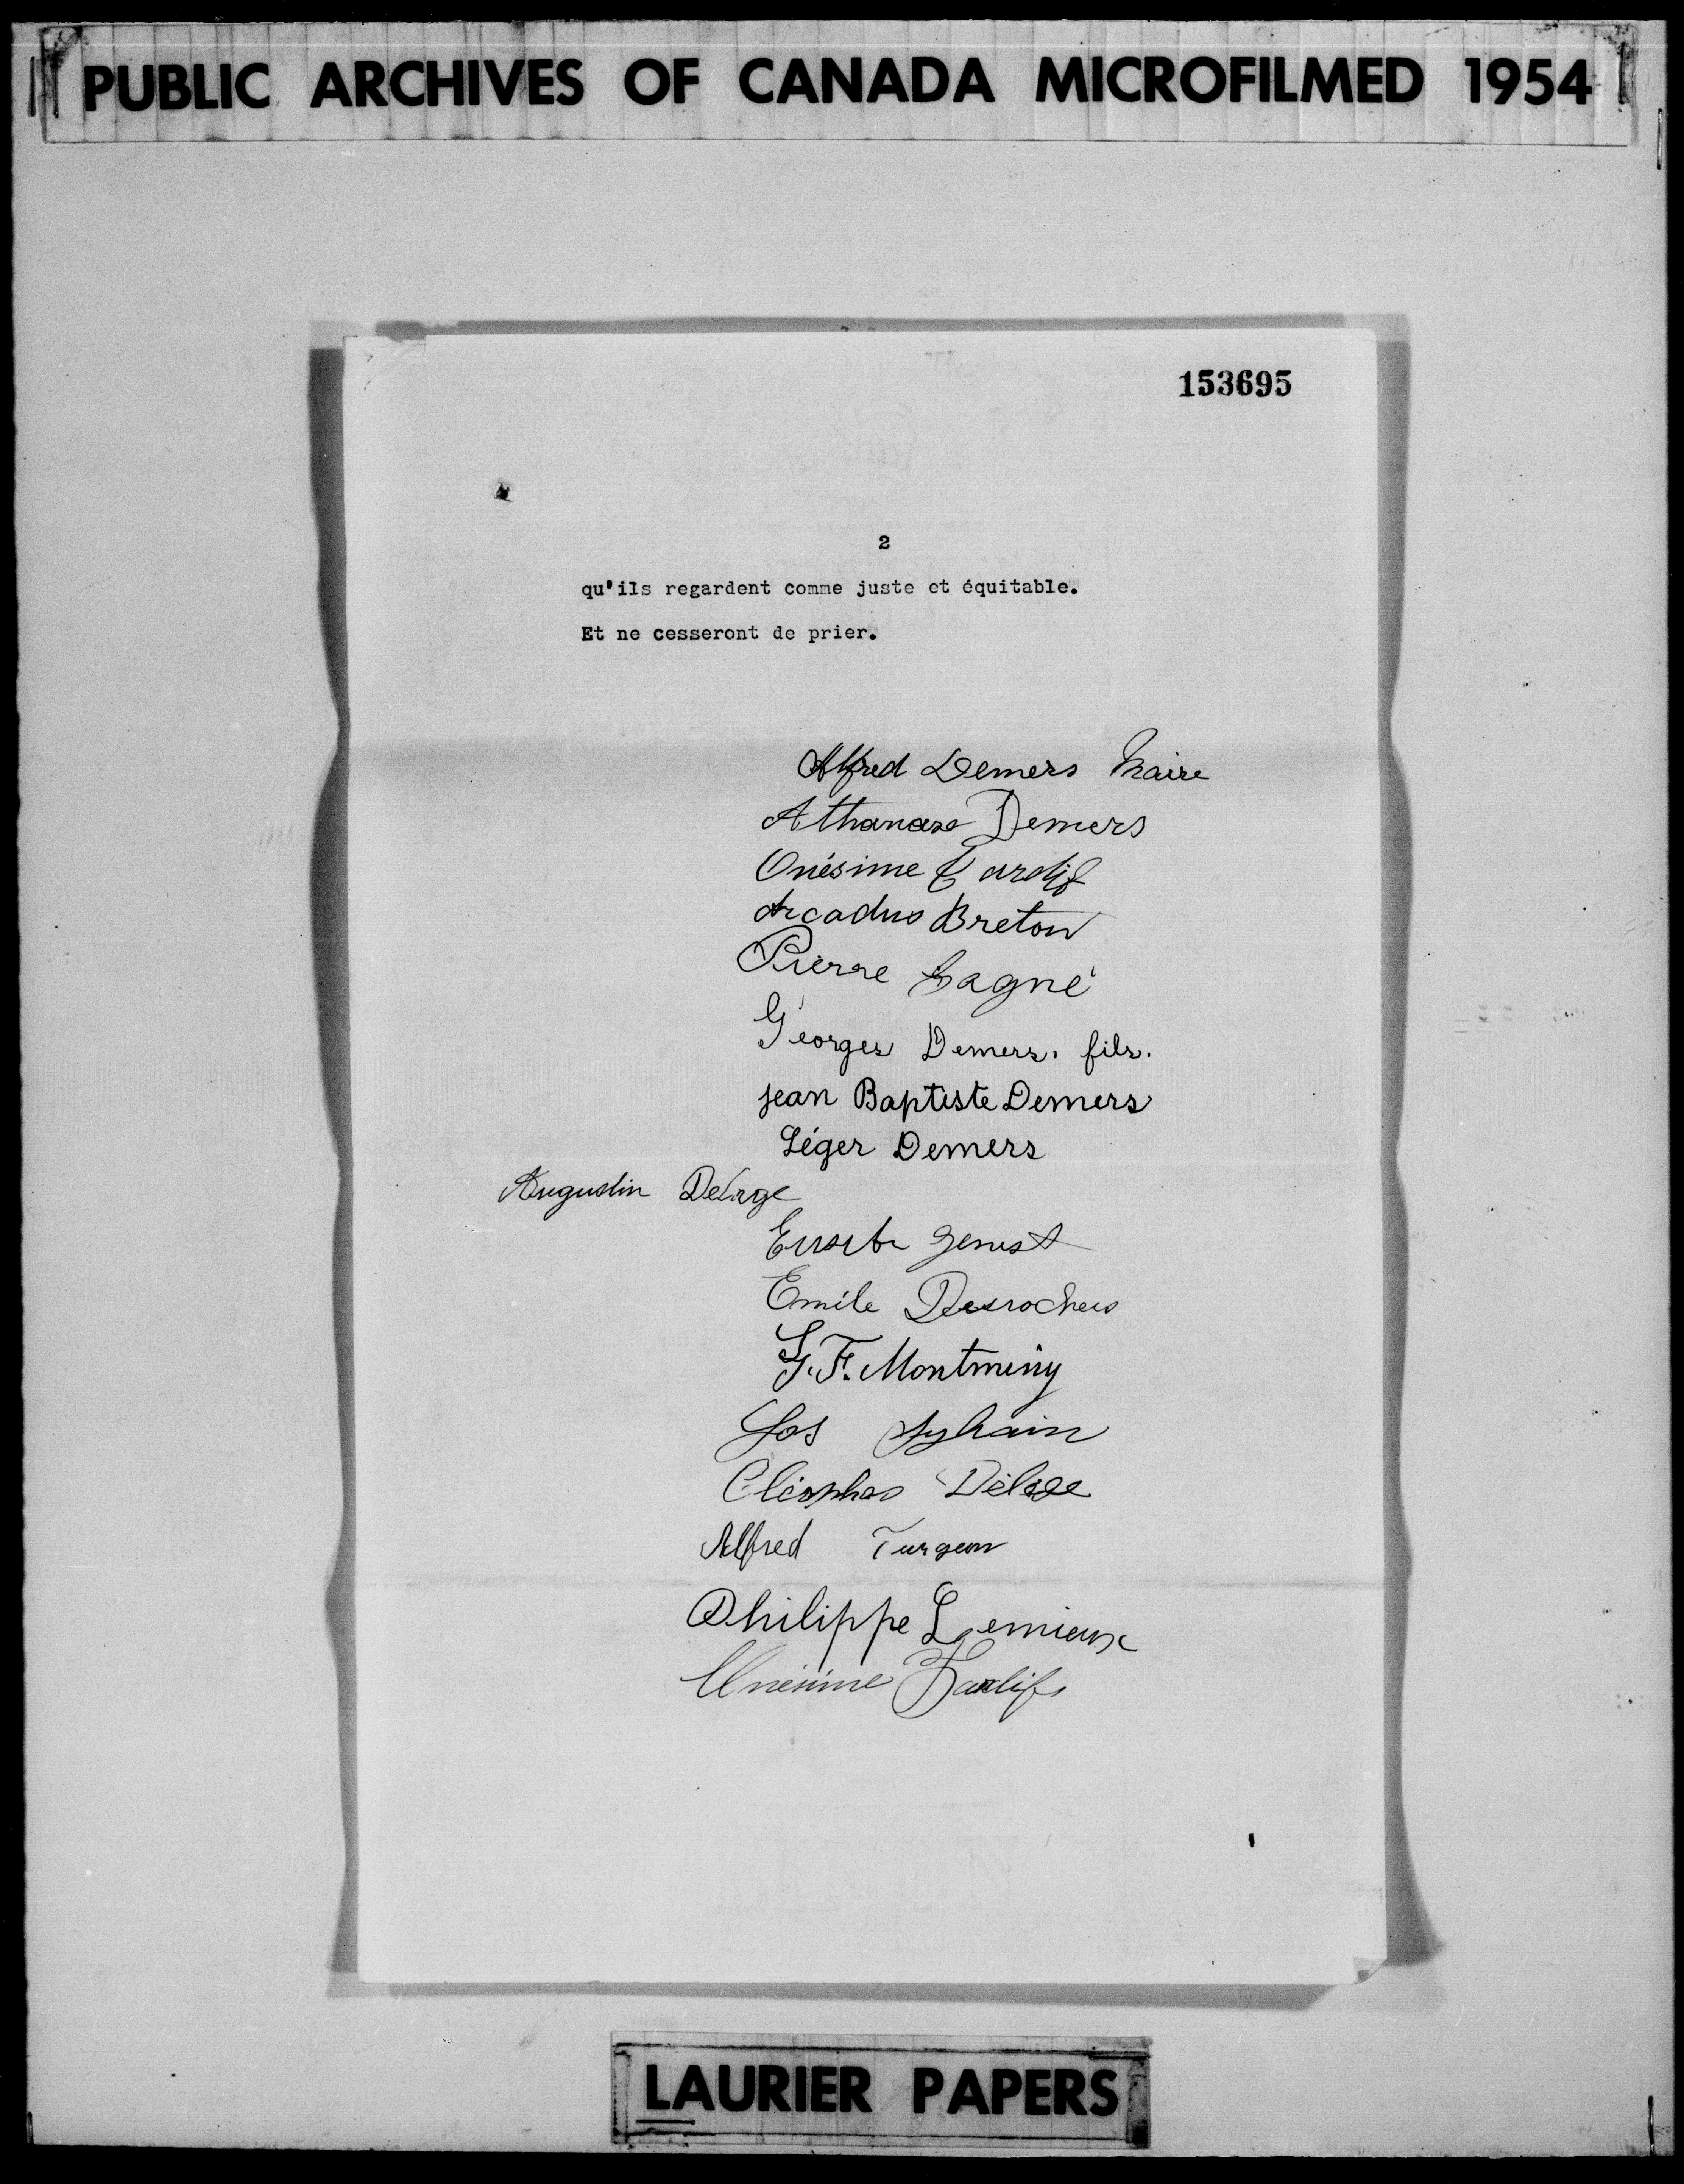 PUBLIC ARCHIVES OF CANADA MICROFILMED 1954
153695
2
qu'ils regardent comme juste et équitable.
Et ne cesseront de prier.
Alfred Demers Maire
Athanase Demers
Onésime Tardif
Arcadus Breton
Pierre Gagné
Georges Demers. fils.
Jean Baptiste Demers
Léger Demers
Augustin Delage
Genest
Emile Desrochers
G. F. Montminy
Jos Sylvain
Cléophas Délage
Alfred Turgeon
Philippe Lemieux
Onésime Tardif
LAURIER PAPERS